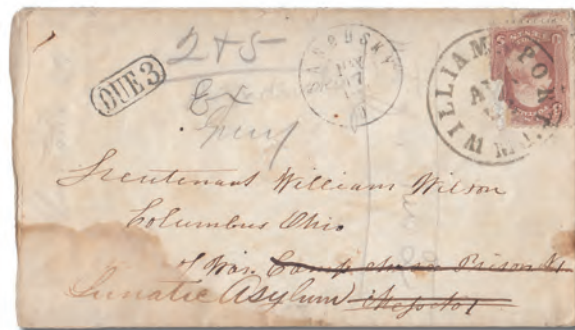 2 + 5
DUE 3
SANDUSKY
WILLIAMSPORT
Ex
Lieutenant William Wilson
Columbus Ohio
of War. Camp Chase Prison
Lunatic Asylum